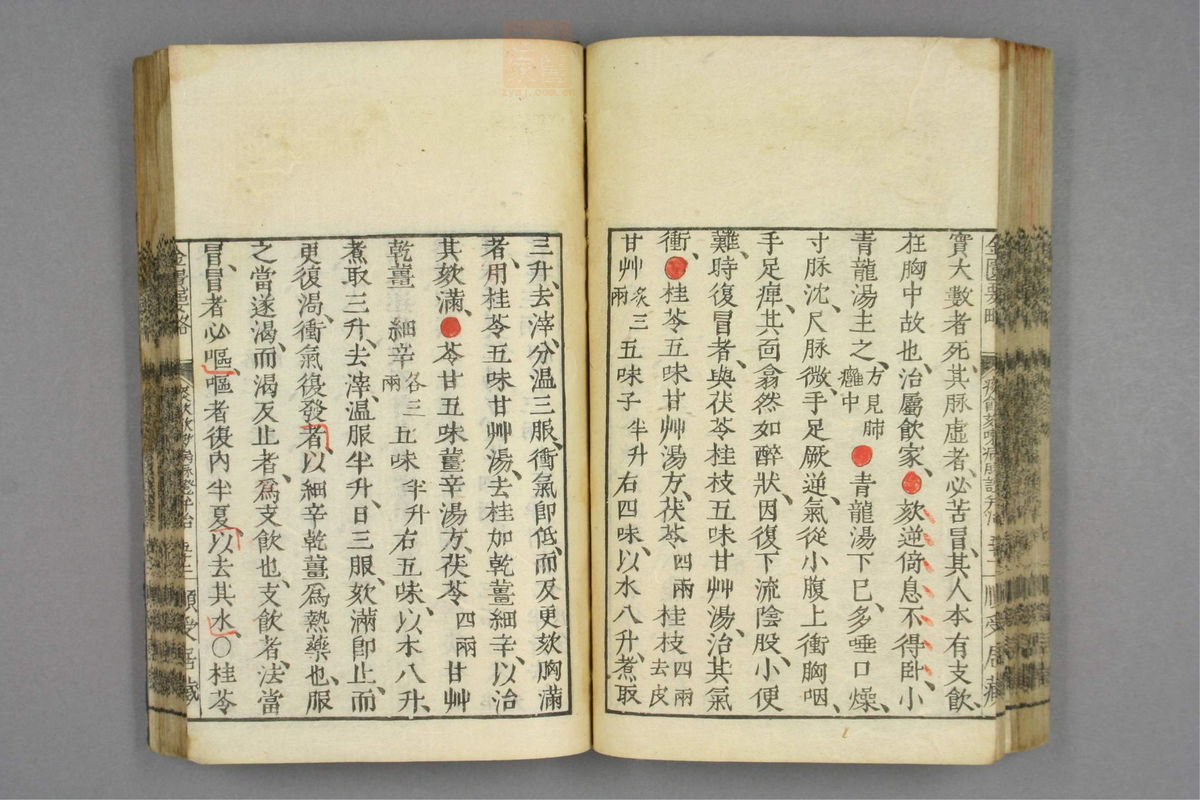 實大數者死、其脉虛者、必苦冒、其人本有支飲、
在胸中故也、治屬飲家、●欬逆倚息不得臥、小
青龍湯主之、方見肺癰中●青龍湯下已、多唾口燥、
寸脉沈、尺脉微、手足厥逆、氣從小腹上衝胸咽、
手足痺、其面翕然如醉狀、因復下流陰股、小便
難、時復冒者、與茯苓桂枝五味甘艸湯、治其氣
衝、●桂苓五味甘艸湯方、茯苓四兩桂枝四兩去皮
甘艸炙三兩五味子半升右四味、以水八升、煮取
三升、去滓、分溫三服、衝氣即低、而反更欬胸滿
者、用桂苓五味甘艸湯、去桂加乾薑細辛、以治
其欬滿、●苓甘五味薑辛湯方、茯苓四兩甘艸
乾薑細辛各三兩五味半升右五味、以水八升、
煮取三升、去滓、溫服半升、日三服、欬滿即止、而
更復渴、衝氣復發者、以細辛乾薑爲熱藥也、服
之當遂渴、而渴反止者、爲支飲也、支飲者、法當
冒、冒者必嘔、嘔者復內半夏、以去其水、○桂苓
zysj.com.cn